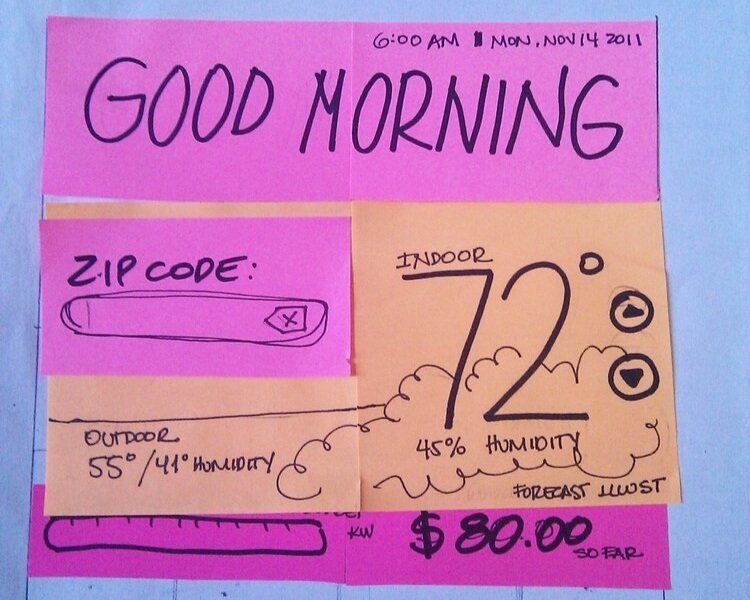 6:00 AM MON, NOV 14 2011
GOOD MORNING
ZIP CODE:
X
INDOOR
72°
45% HUMIDITY
OUTDOOR
55°/41° HUMIDITY
FORECAST ILLUST
KW
$80.00
SO FAR